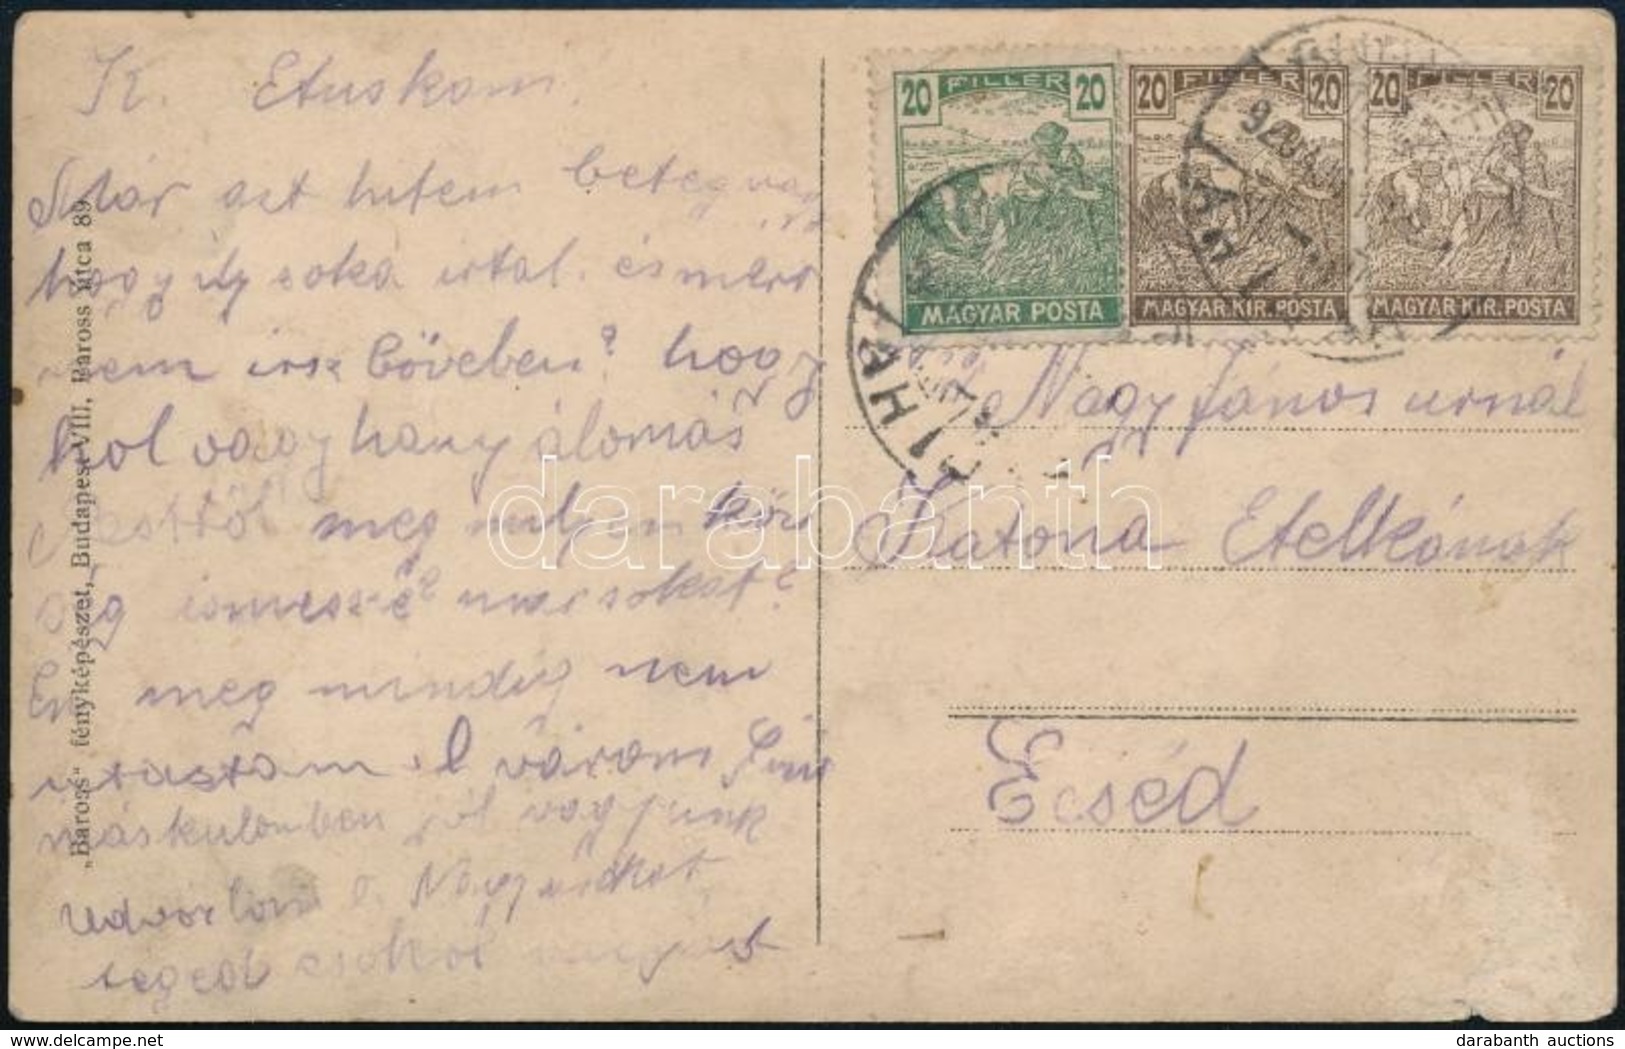 K. Etuskom!
Már azt hitem beteg vagy
hogy ily soká irtal. és mért
nem irsz bövebben? hogy
hol vagy hány álomás
Pestről meg milyen köz
ség ismersz-é már sokat?
En meg mindig nem
utaztam el várom
máskulömben jól vagyunk
Udvozlom a Nagyúékat
téged csokol
„Baross" fényképészet, Budapest VIII, Baross utca 89.
20 FILLÉR 20
MAGYAR POSTA
20 FILLÉR 20
MAGYAR KIR. POSTA
20 FILLÉR 20
MAGYAR KIR. POSTA
Nagy János urnál
Katona Etelkának
Ecséd
darabanth
darabanth auctions